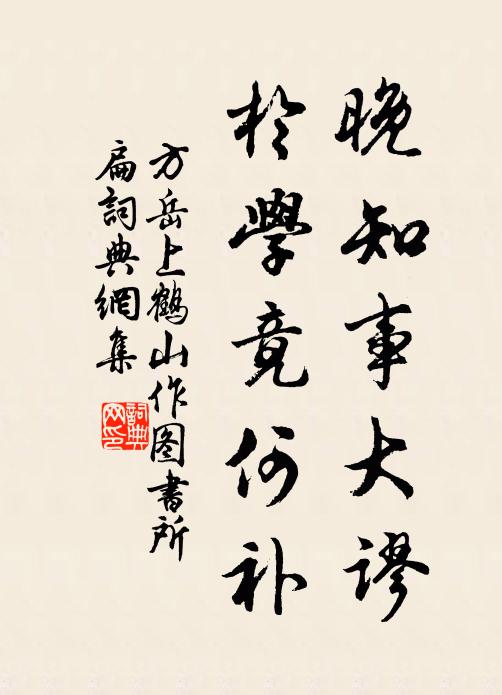 晚知事大謬
於學竟何补
方岳上鶴山作图書所
扁詞典網集
詞典网印